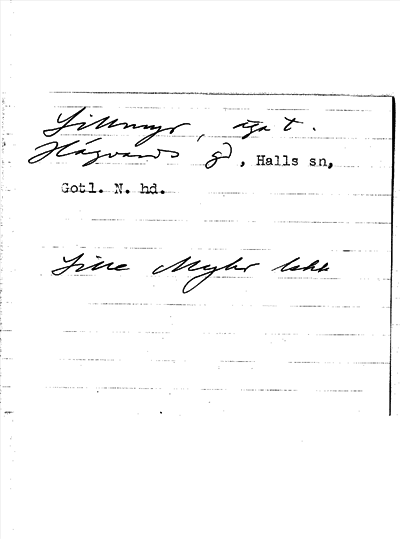 Lillmyr, äga t.
Hägvards gd, Halls sn,
Gotl. N. hd.
Lille Myhr